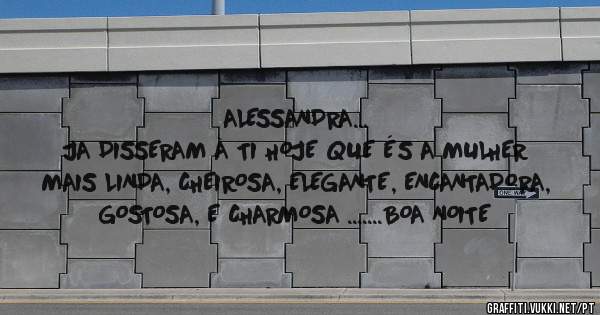 ALESSANDRA...
JA DISSERAM À TI HOJE QUE ÉS A MULHER
MAIS LINDA, CHEIROSA, ELEGANTE, ENCANTADORA,
GOSTOSA, E CHARMOSA .......BOA NOITE
ONE WAY
GRAFFITI.VUKKI.NET/PT